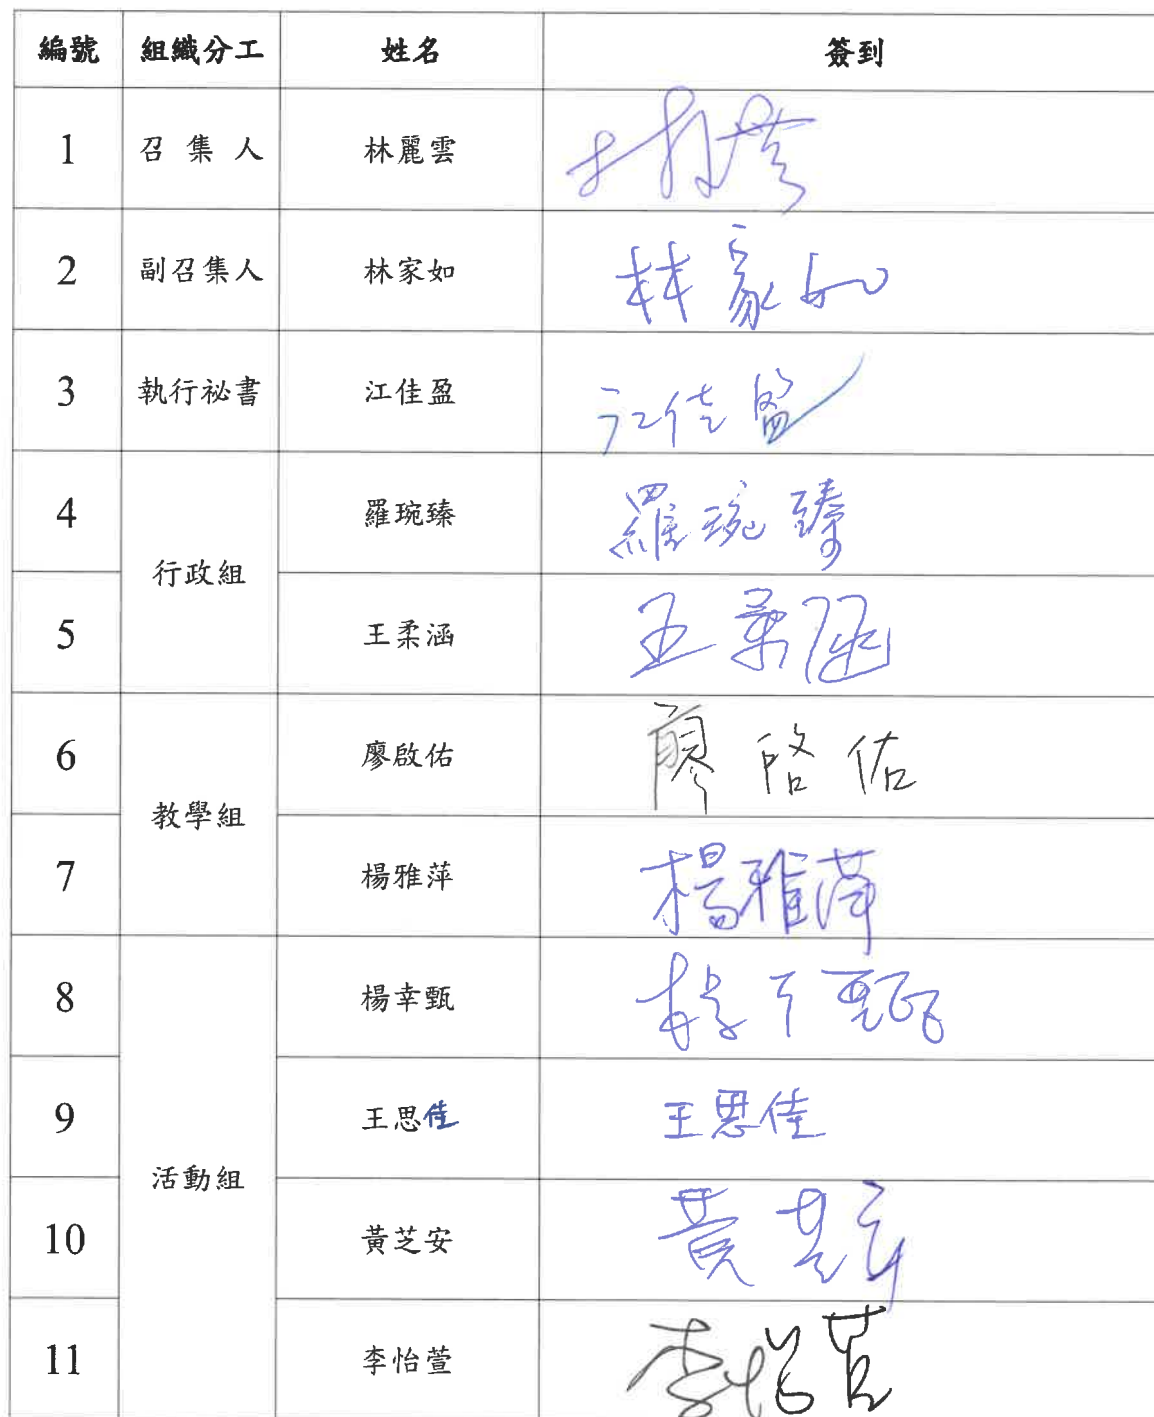 編號 組織分工 姓名 簽到
1 召集人 林麗雲
2 副召集人 林家如 林家如
3 執行祕書 江佳盈 江佳盈
4 行政組 羅琬臻 羅琬臻
5 王柔涵 王柔涵
6 教學組 廖啟佑 廖啓佑
7 楊雅萍 楊雅萍
8 活動組 楊幸甄
9 王思佳 王思佳
10 黃芝安 黃芝安
11 李怡萱 李怡萱